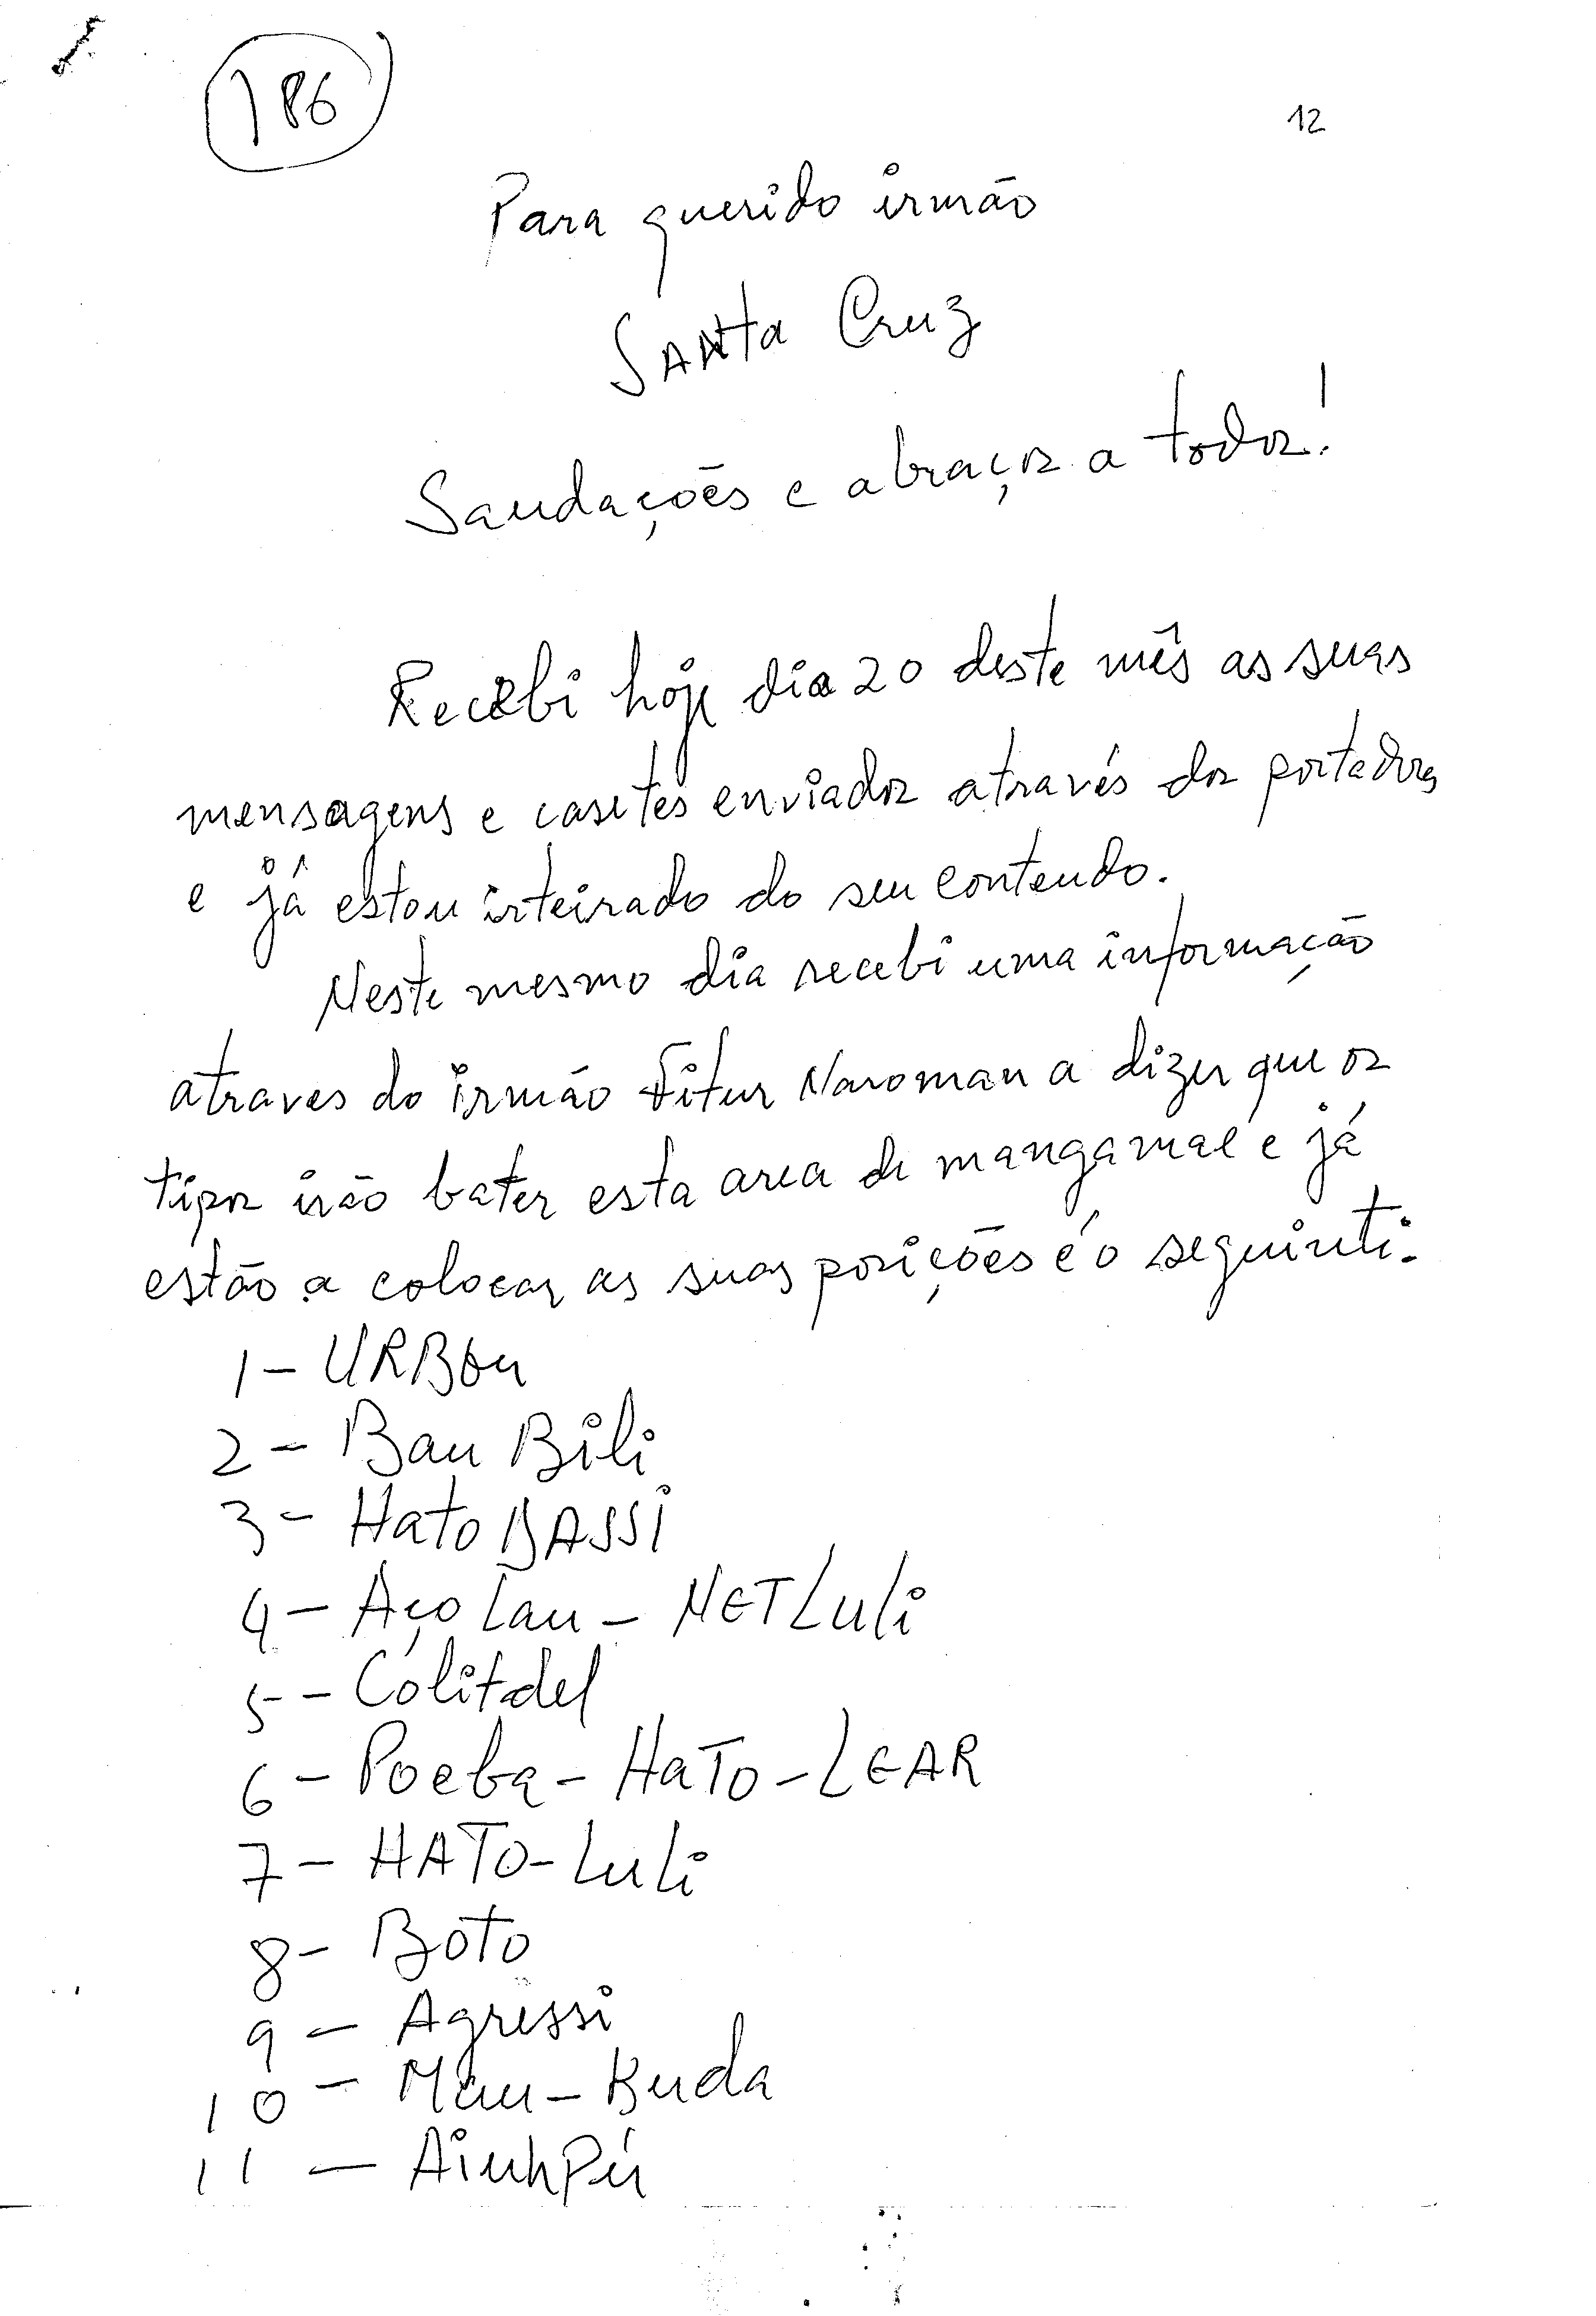 186
12
Para querido irmão
SANta Cruz
Saudações e abraços a todos!
Recebi hoje dia 20 deste mês as suas
mensagens e casetes enviados através dos portadores
e já estou inteirado do seu contendo.
Neste mesmo dia recebi uma informação
atraves do irmão Fitur Naroman a dizer que os
tipos irão bater esta area de mangamae e já
estão a colocar as suas posições é o seguinte:
1 - URBou
2 - Bau Bili
3 - Hato BASSI
4 - Aço Lau - NETLuli
5 - Colitdel
6 - Poeba - HaTo - LEAR
7 - HATO - Luli
8 - BoTo
9 - Agressi
10 - Mau - Buda
11 - AiuhPú